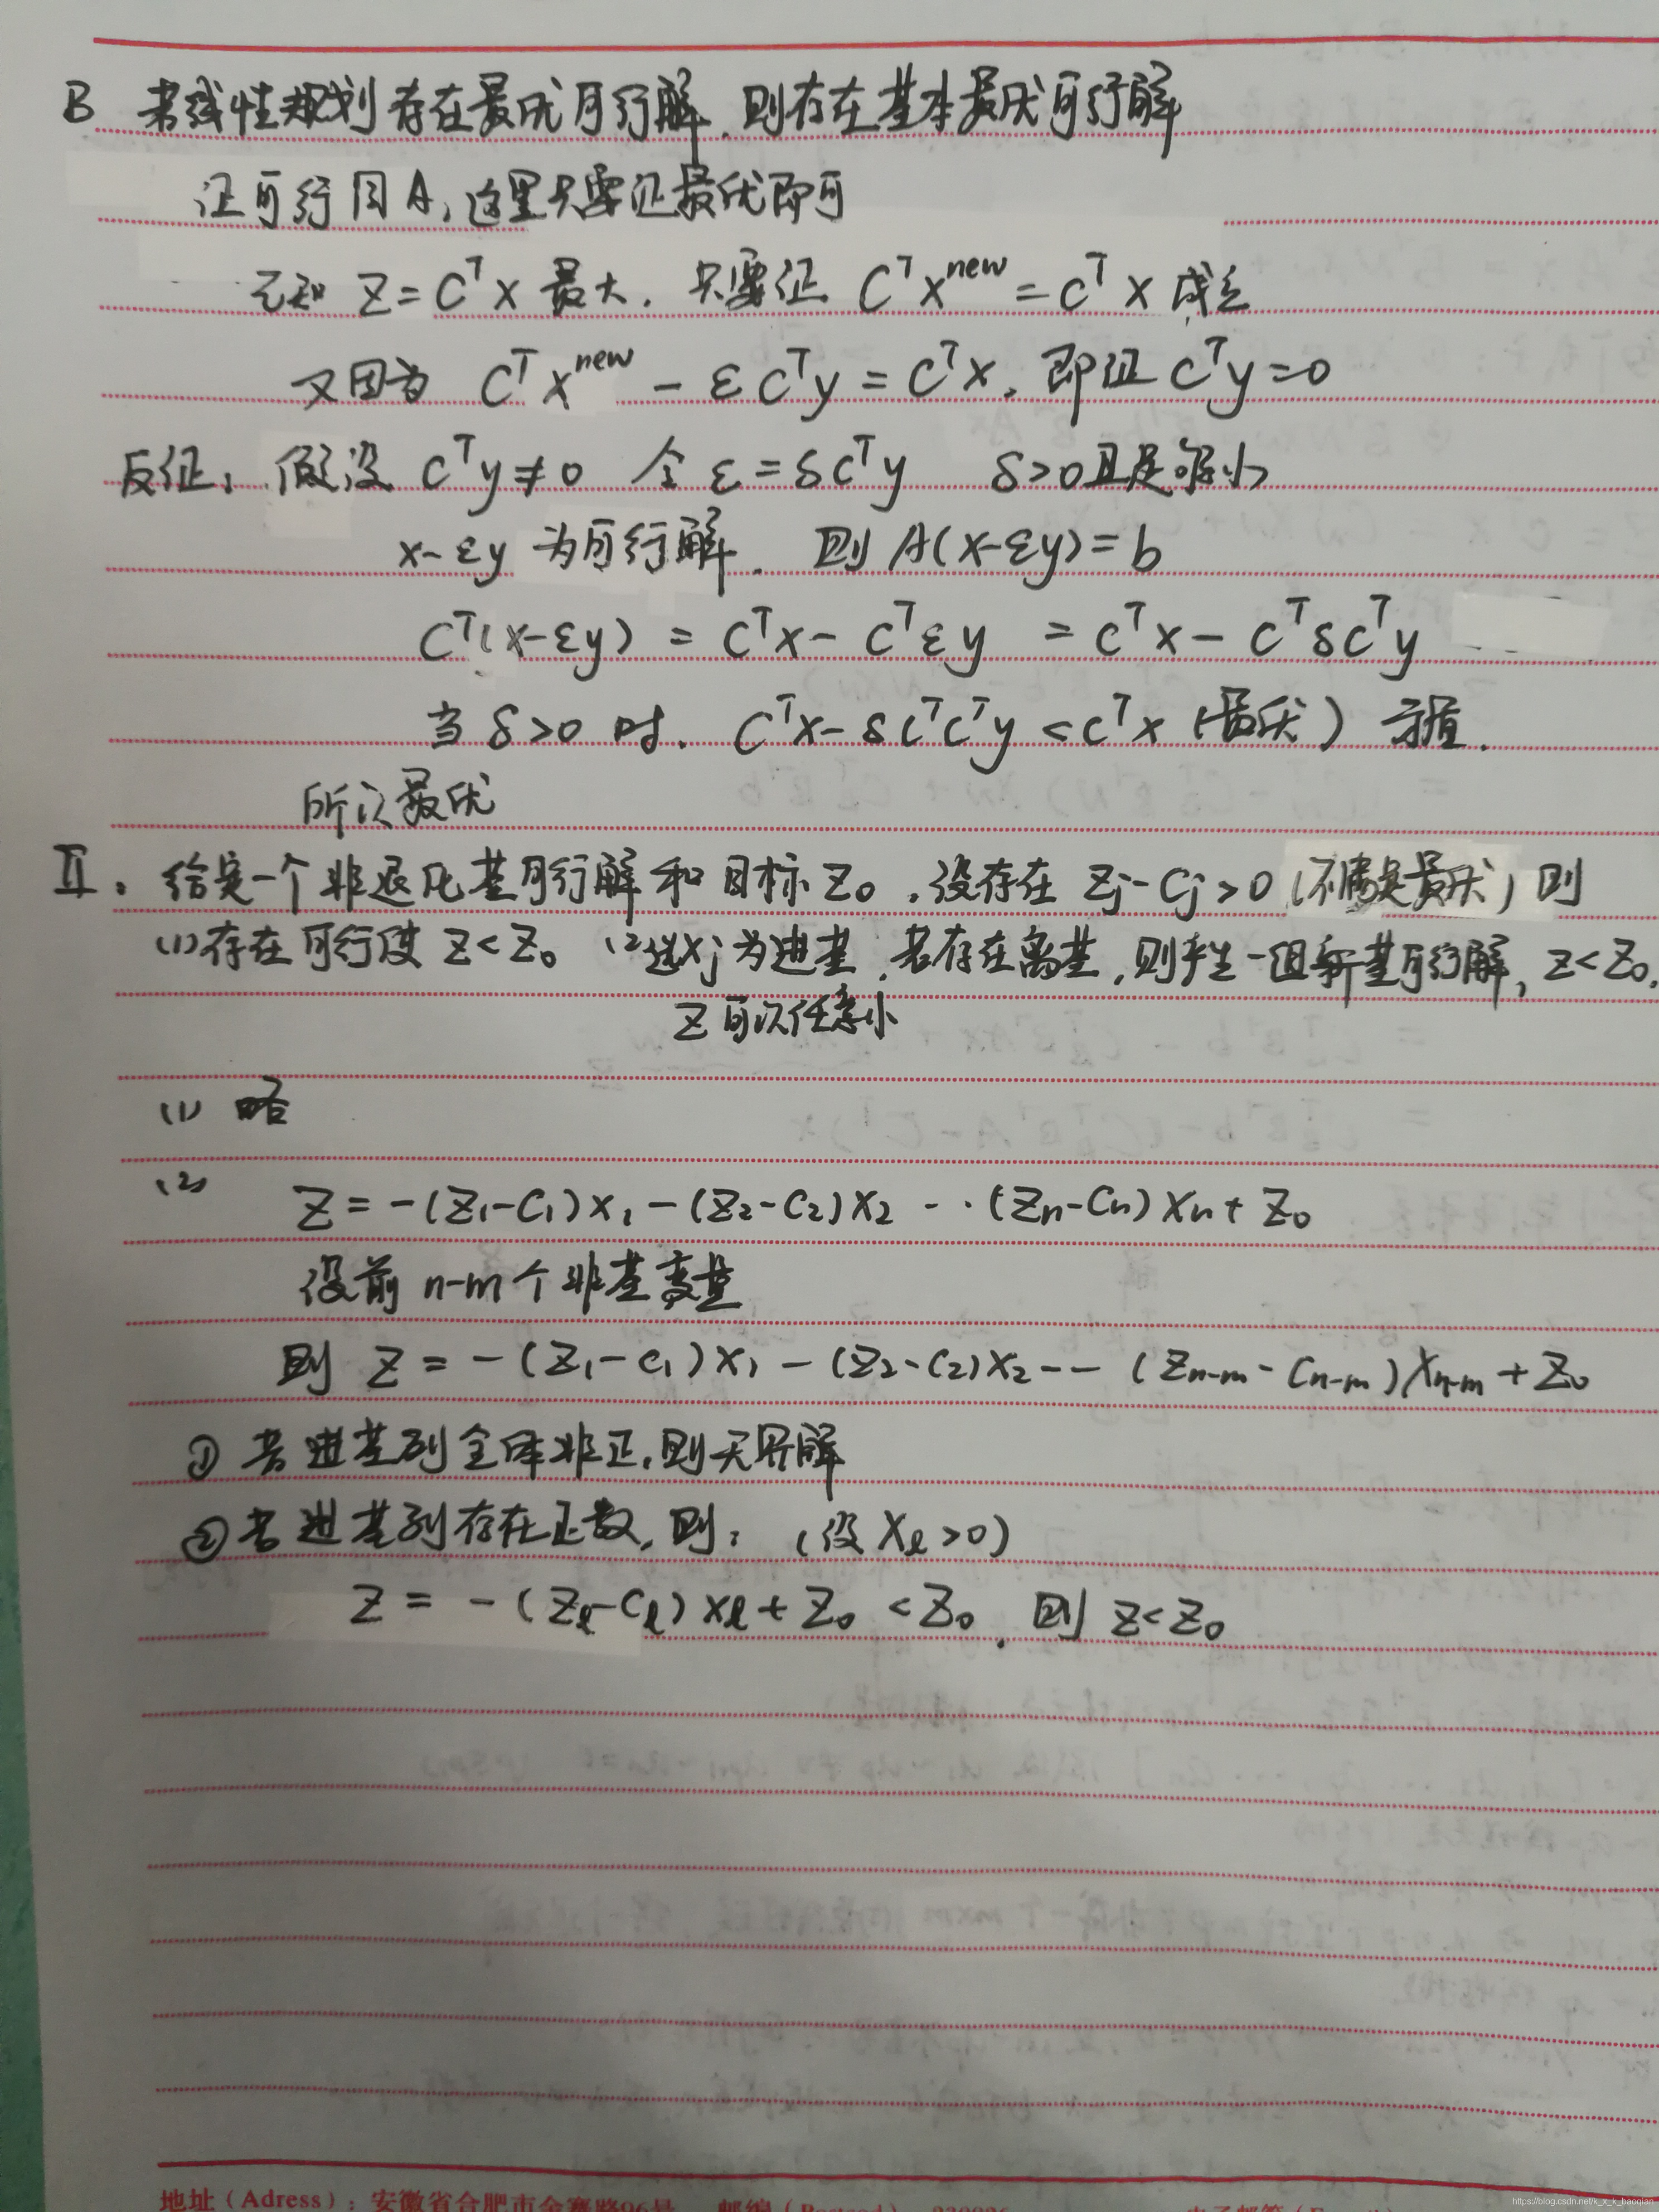 B 若线性规划存在最优可行解,则存在基本最优可行解
证可行同A,这里只要证最优即可
已知 Z=C^T x 最大,只要证 C^T x^new = C^T x 成立
又因为 C^T x^new - εC^T y = C^T x,即证 C^T y=0
反证:假设 C^T y≠0 令 ε=δC^T y δ>0且足够小
x-εy 为可行解. 则 A(x-εy)=b
C^T(x-εy) = C^T x - C^T εy = C^T x - C^T δC^T y
当 δ>0 时. C^T x-δC^T C^T y < C^T x (最优) 矛盾.
所以最优
II. 给定一个非退化基可行解和目标 Z₀ ,设存在 Zj-Cj>0 (不满足最优) 则
(1)存在可行使 Z<Z₀ (2)选xj为进基,若存在离基,则产生一组新基可行解, Z<Z₀.
Z可以任意小
(1) 略
(2) Z = -(Z₁-C₁)x₁-(Z₂-C₂)X₂ -··(Zn-Cn)Xn+Z₀
设前 n-m 个非基变量
则 Z = -(Z₁-C₁)X₁-(Z₂-C₂)X₂-- (Zn-m-Cn-m)Xn-m+Z₀
① 若进基列全体非正,则无界解
②若进基列存在正数,则: (设 Xℓ>0)
Z = -(Zℓ-Cℓ)xℓ+Z₀ <Z₀ , 则 Z<Z₀
地址(Adress):安徽省合肥市金寨路96号 邮编
https://blog.csdn.net/k_x_k_baoqian